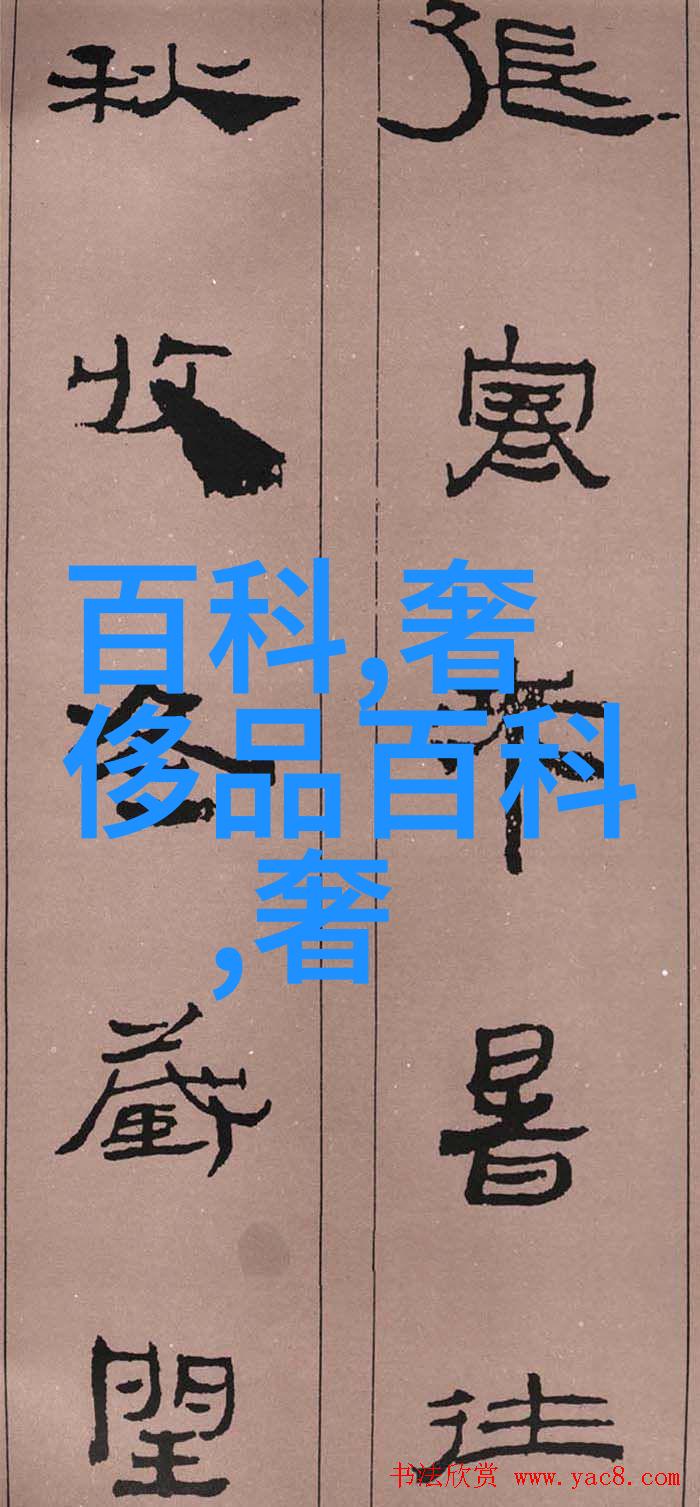 張寒來暑往
秋收冬藏閏
百科,奢
侈品百科
,奢
书法欣赏 www.yac8.com